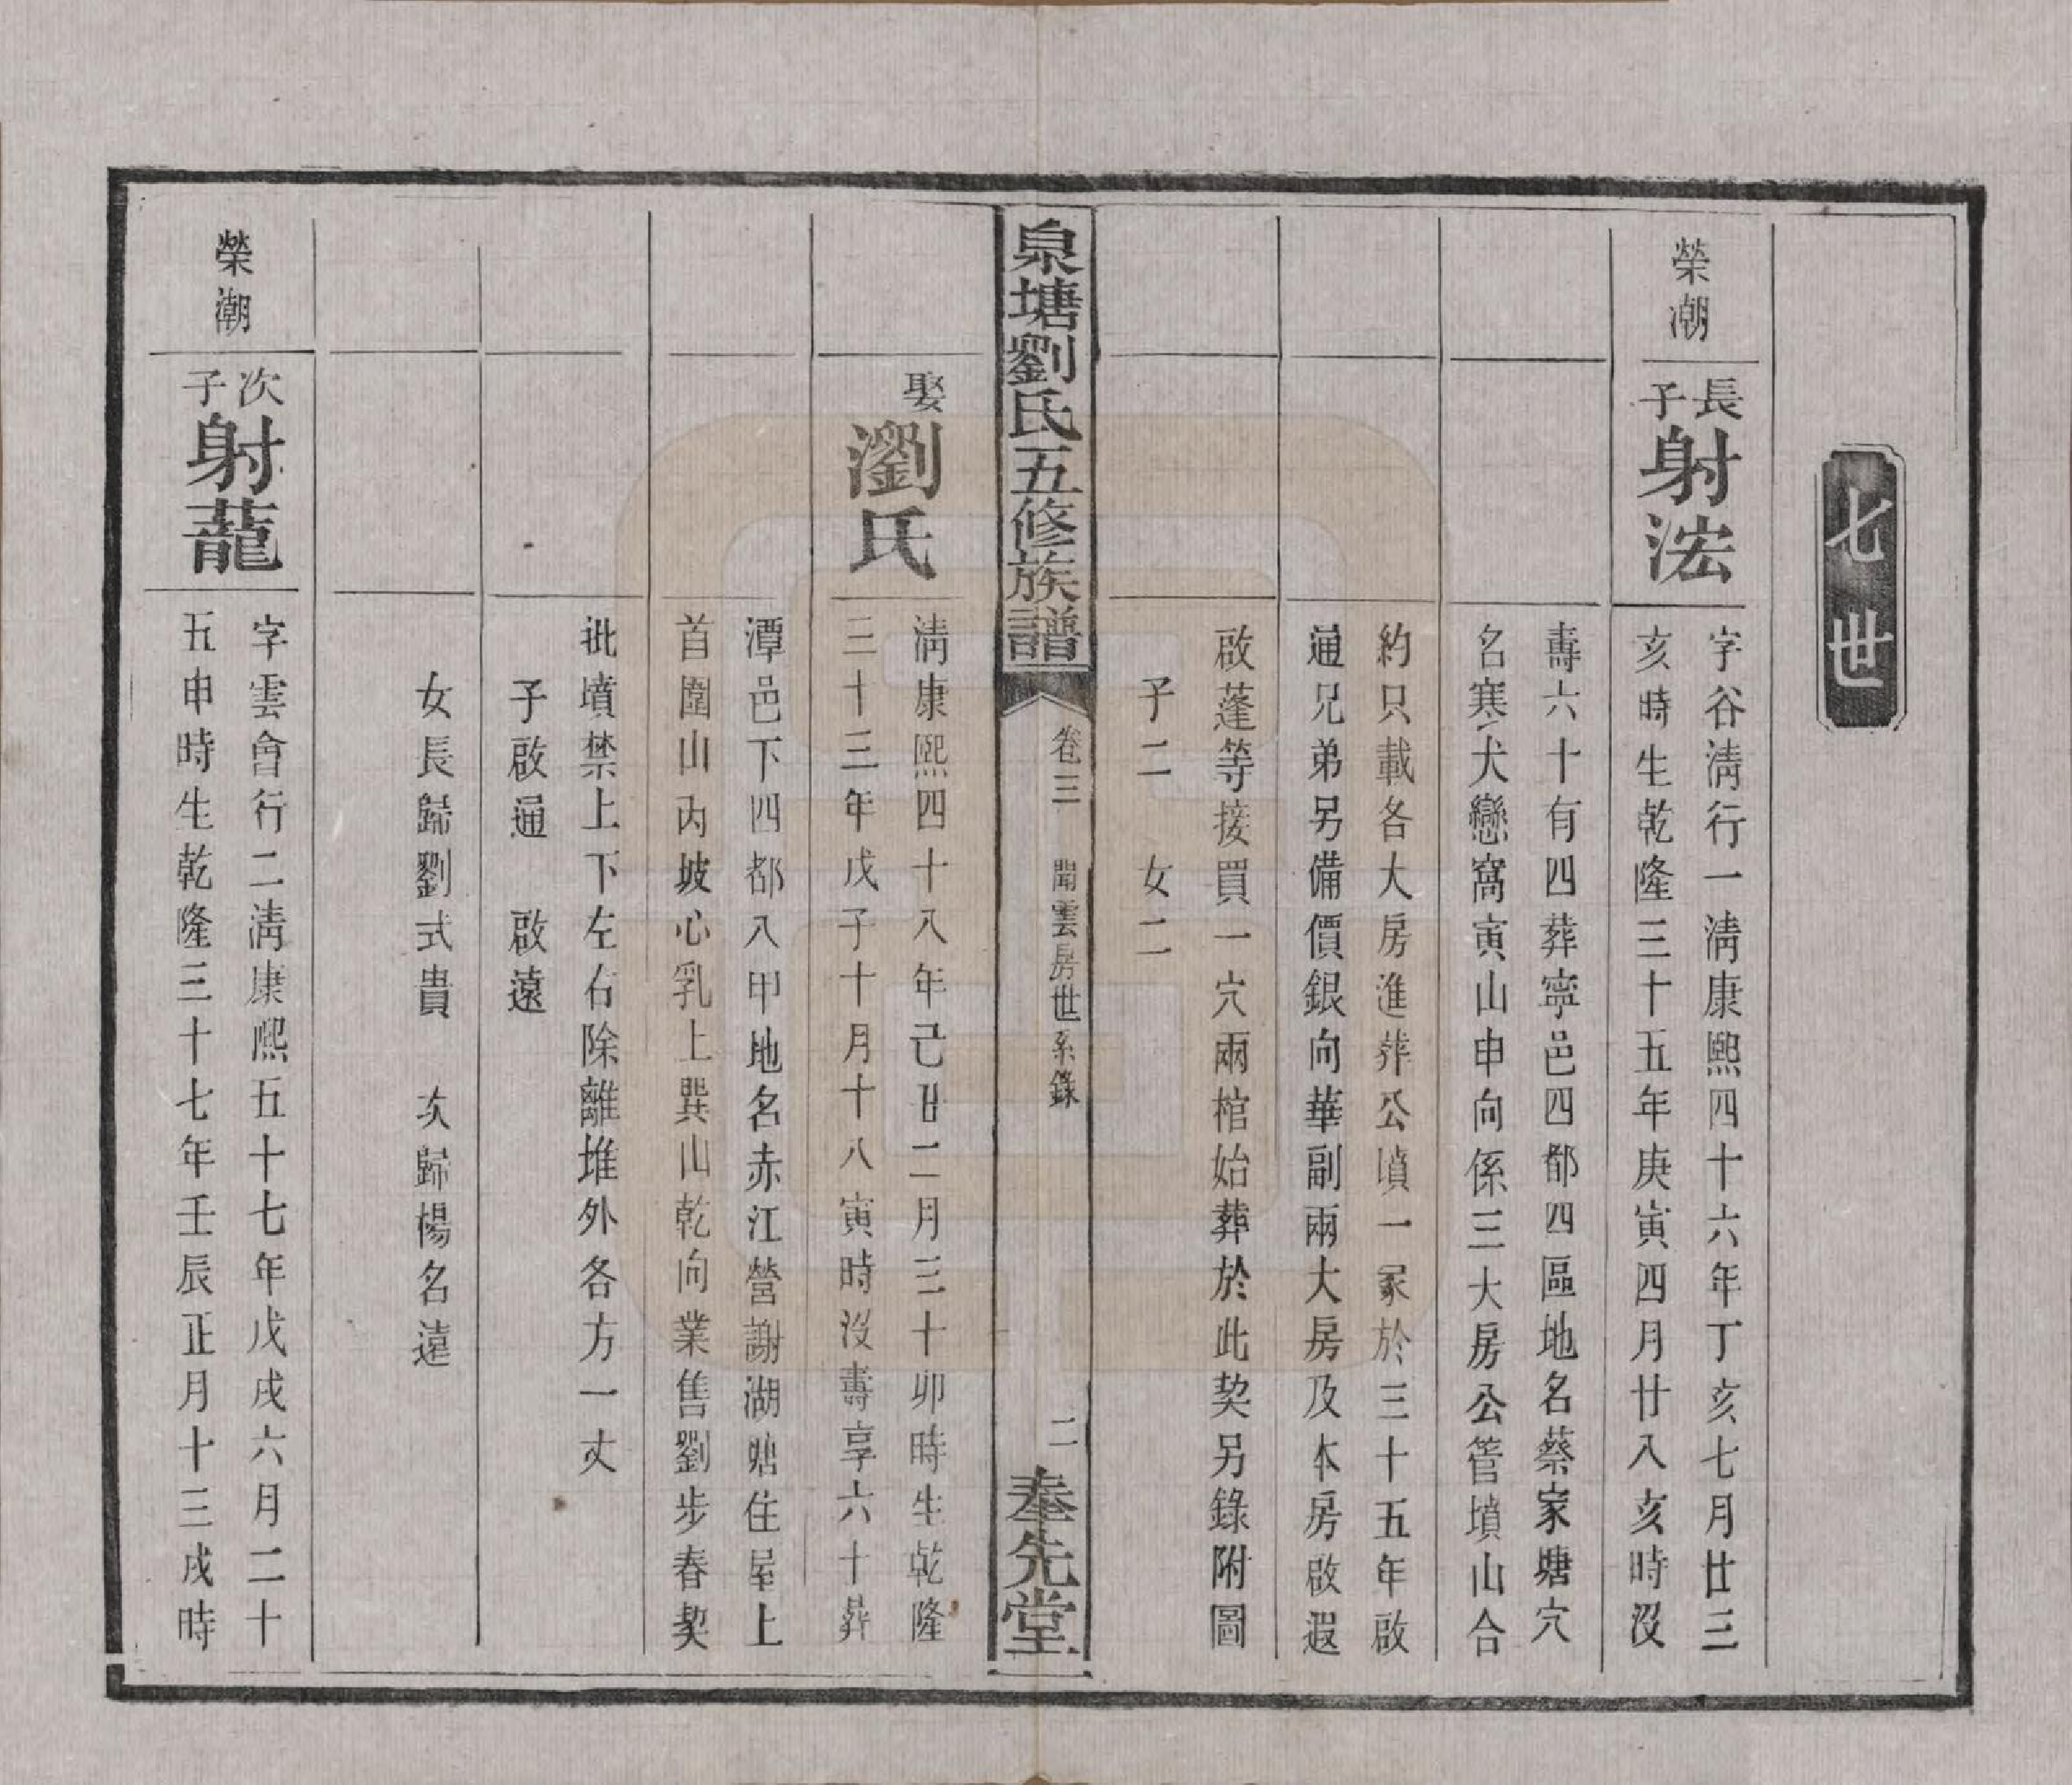 七世
榮潮
長子
射浤
字谷淸行一淸康熙四十六年丁亥七月廿三
亥時生乾隆三十五年庚寅四月廿八亥時沒
壽六十有四葬寧邑四都四區地名蔡家塘穴
名寒犬戀窩寅山申向係三大房公管墳山合
約只載各大房進葬公墳一冢於三十五年啟
通兄弟另備價銀向華副兩大房及本房啟遐
啟蓬等接買一穴兩棺始葬於此契另錄附圖
子二　女二
泉塘劉氏五修族譜
卷三　聞雲房世系錄
二
奉先堂
娶
瀏氏
淸康熙四十八年己丑二月三十卯時生乾隆
三十三年戊子十月十八寅時沒壽享六十葬
潭邑下四都八甲地名赤江營謝湖塘住屋上
首圍山內坡心乳上巽山乾向業售劉步春契
批墳禁上下左右除離堆外各方一丈
子啟通　啟遠
女長歸劉式貴　次歸楊名遠
榮潮
次子
射蘢
字雲會行二淸康熙五十七年戊戌六月二十
五申時生乾隆三十七年壬辰正月十三戌時